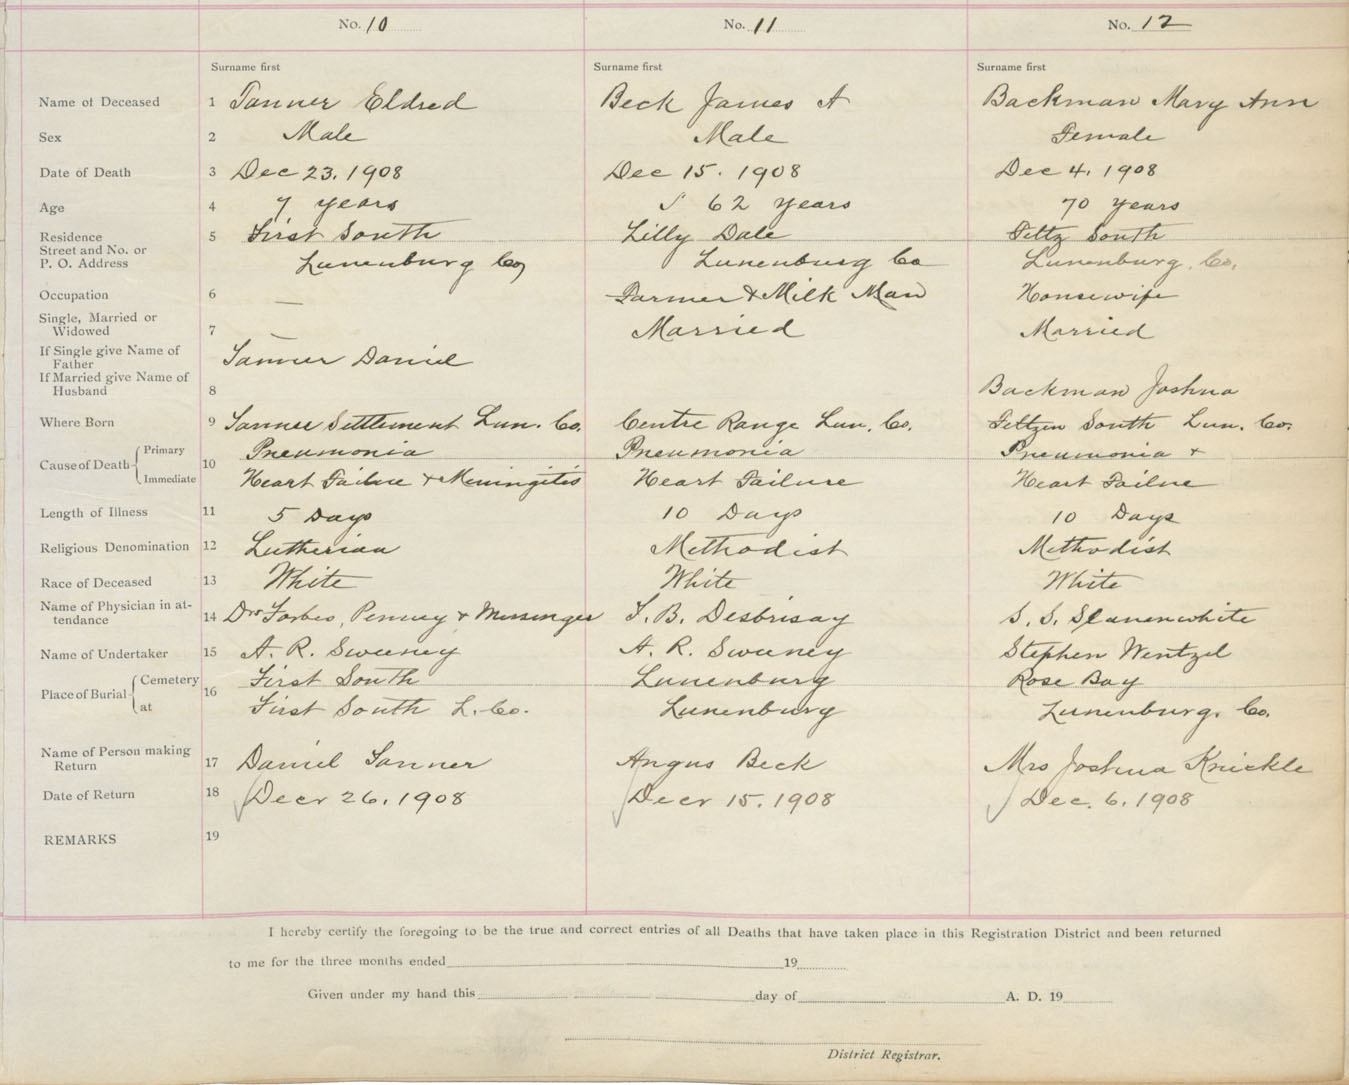 No. 10 No. 11 No. 12
Surname first Surname first Surname first
Name of Deceased 1 Tanner Eldred Beck James A Backman Mary Ann
Sex 2 Male Male Female
Date of Death 3 Dec 23. 1908 Dec 15. 1908 Dec 4. 1908
Age 4 7 years 62 years 70 years
Residence 5 First South Lilly Dale South
Street and No. or
P. O. Address Lunenburg Co, Lunenburg Co Lunenburg. Co.
Occupation 6 — Farmer & Milk Man Housewife
Single, Married or
Widowed 7 — Married Married
If Single give Name of
Father Tanner Daniel
If Married give Name of
Husband 8 Backman Joshua
Where Born 9 Tanner Settlement Lun. Co. Centre Range Lun. Co. Feltzen South Lun. Co.
Cause of Death 10 Primary Pneumonia Pneumonia Pneumonia +
Immediate Heart Failure + Meningitis Heart Failure Heart Failue
Length of Illness 11 5 Days 10 Days 10 Days
Religious Denomination 12 Lutherian Methodist Methodist
Race of Deceased 13 White White White
Name of Physician in at-
tendance 14 Drs Forbes, Penney + Messenger F. B. Desbrisay S. S. Slauenwhite
Name of Undertaker 15 A. R. Sweeney A. R. Sweeney Stephen Wentzel
Place of Burial 16 Cemetery First South Lunenburg Rose Bay
at First South L. Co. Lunenburg Lunenburg. Co.
Name of Person making
Return 17 Daniel Tanner Angus Beck Mrs Joshua Knickle
Date of Return 18 Decr 26. 1908 Decr 15. 1908 Dec. 6. 1908
REMARKS 19
I hereby certify the foregoing to be the true and correct entries of all Deaths that have taken place in this Registration District and been returned
to me for the three months ended 19
Given under my hand this day of A. D. 19
District Registrar.